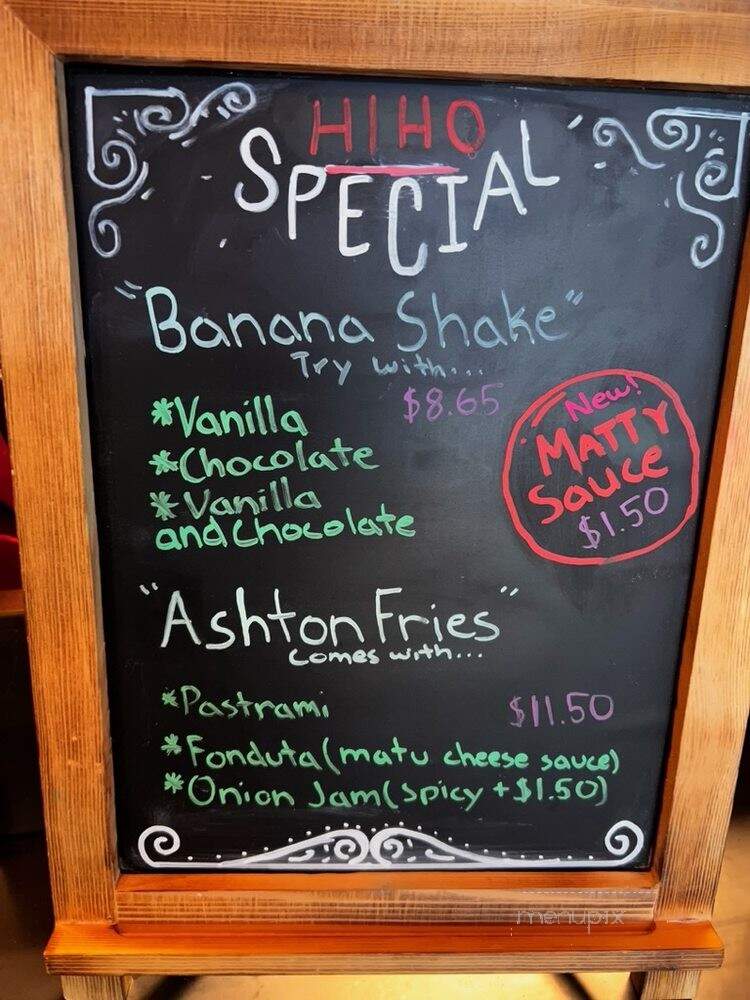 HIHO
SPECIAL
"Banana Shake"
Try with...
$8.65
*Vanilla
*Chocolate
*Vanilla
and Chocolate
New!
MATTY
Sauce
$1.50
"Ashton Fries"
comes with...
*Pastrami
$11.50
*Fonduta (matu cheese sauce)
*Onion Jam (spicy +$1.50)
menupix